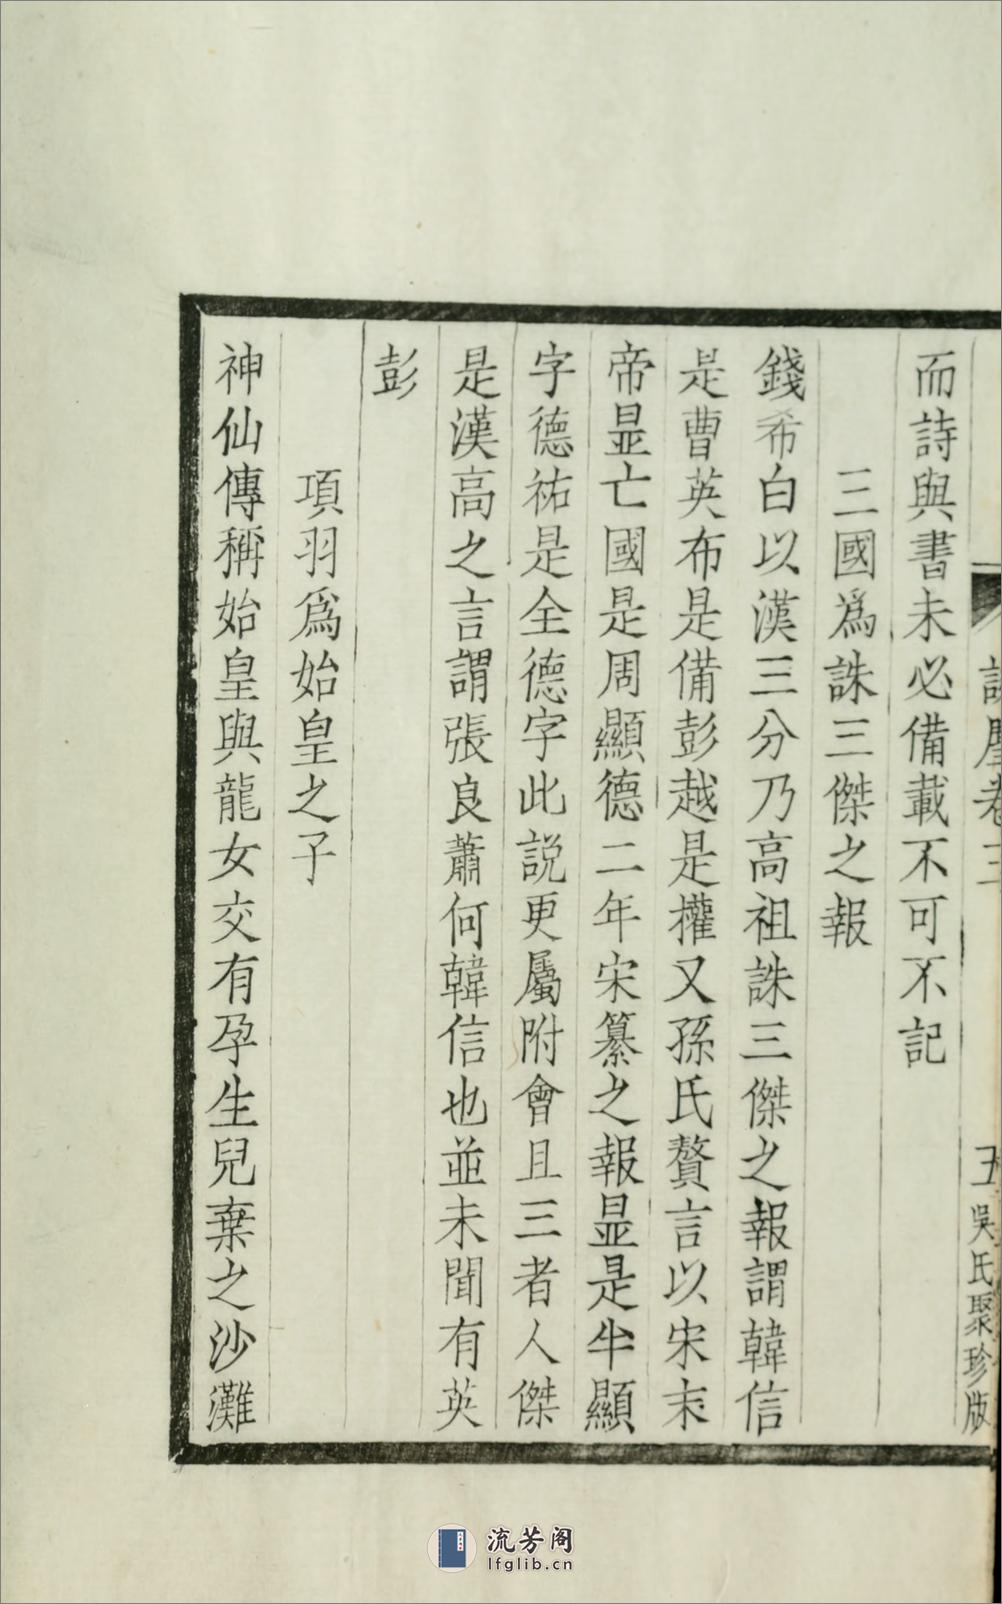 卷三
五 吳氏聚珍版
而詩與書未必備載不可不記
三國爲誅三傑之報
錢希白以漢三分乃高祖誅三傑之報謂韓信
是曹英布是備彭越是權又孫氏贅言以宋末
帝㬎亡國是周顯德二年宋纂之報㬎是半顯
字德祐是全德字此説更屬附會且三者人傑
是漢高之言謂張良蕭何韓信也並未聞有英
彭
項羽爲始皇之子
神仙傳稱始皇與龍女交有孕生兒棄之沙灘
流芳阁
lfglib.cn